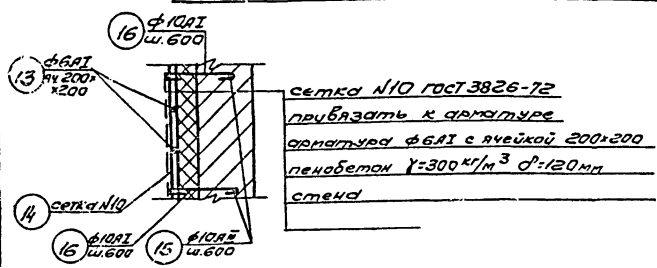 16 ф10АI
ш.600
13 ф6АI
яч.200×
×200
сетка №10 ГОСТ 3826-72
привязать к арматуре
арматура ф6АI с ячейкой 200×200
пенобетон γ=300 кг/м³ δ=120мм
стена
14 сетка №10
16 ф10АI
ш.600
15 ф10АII
ш.600